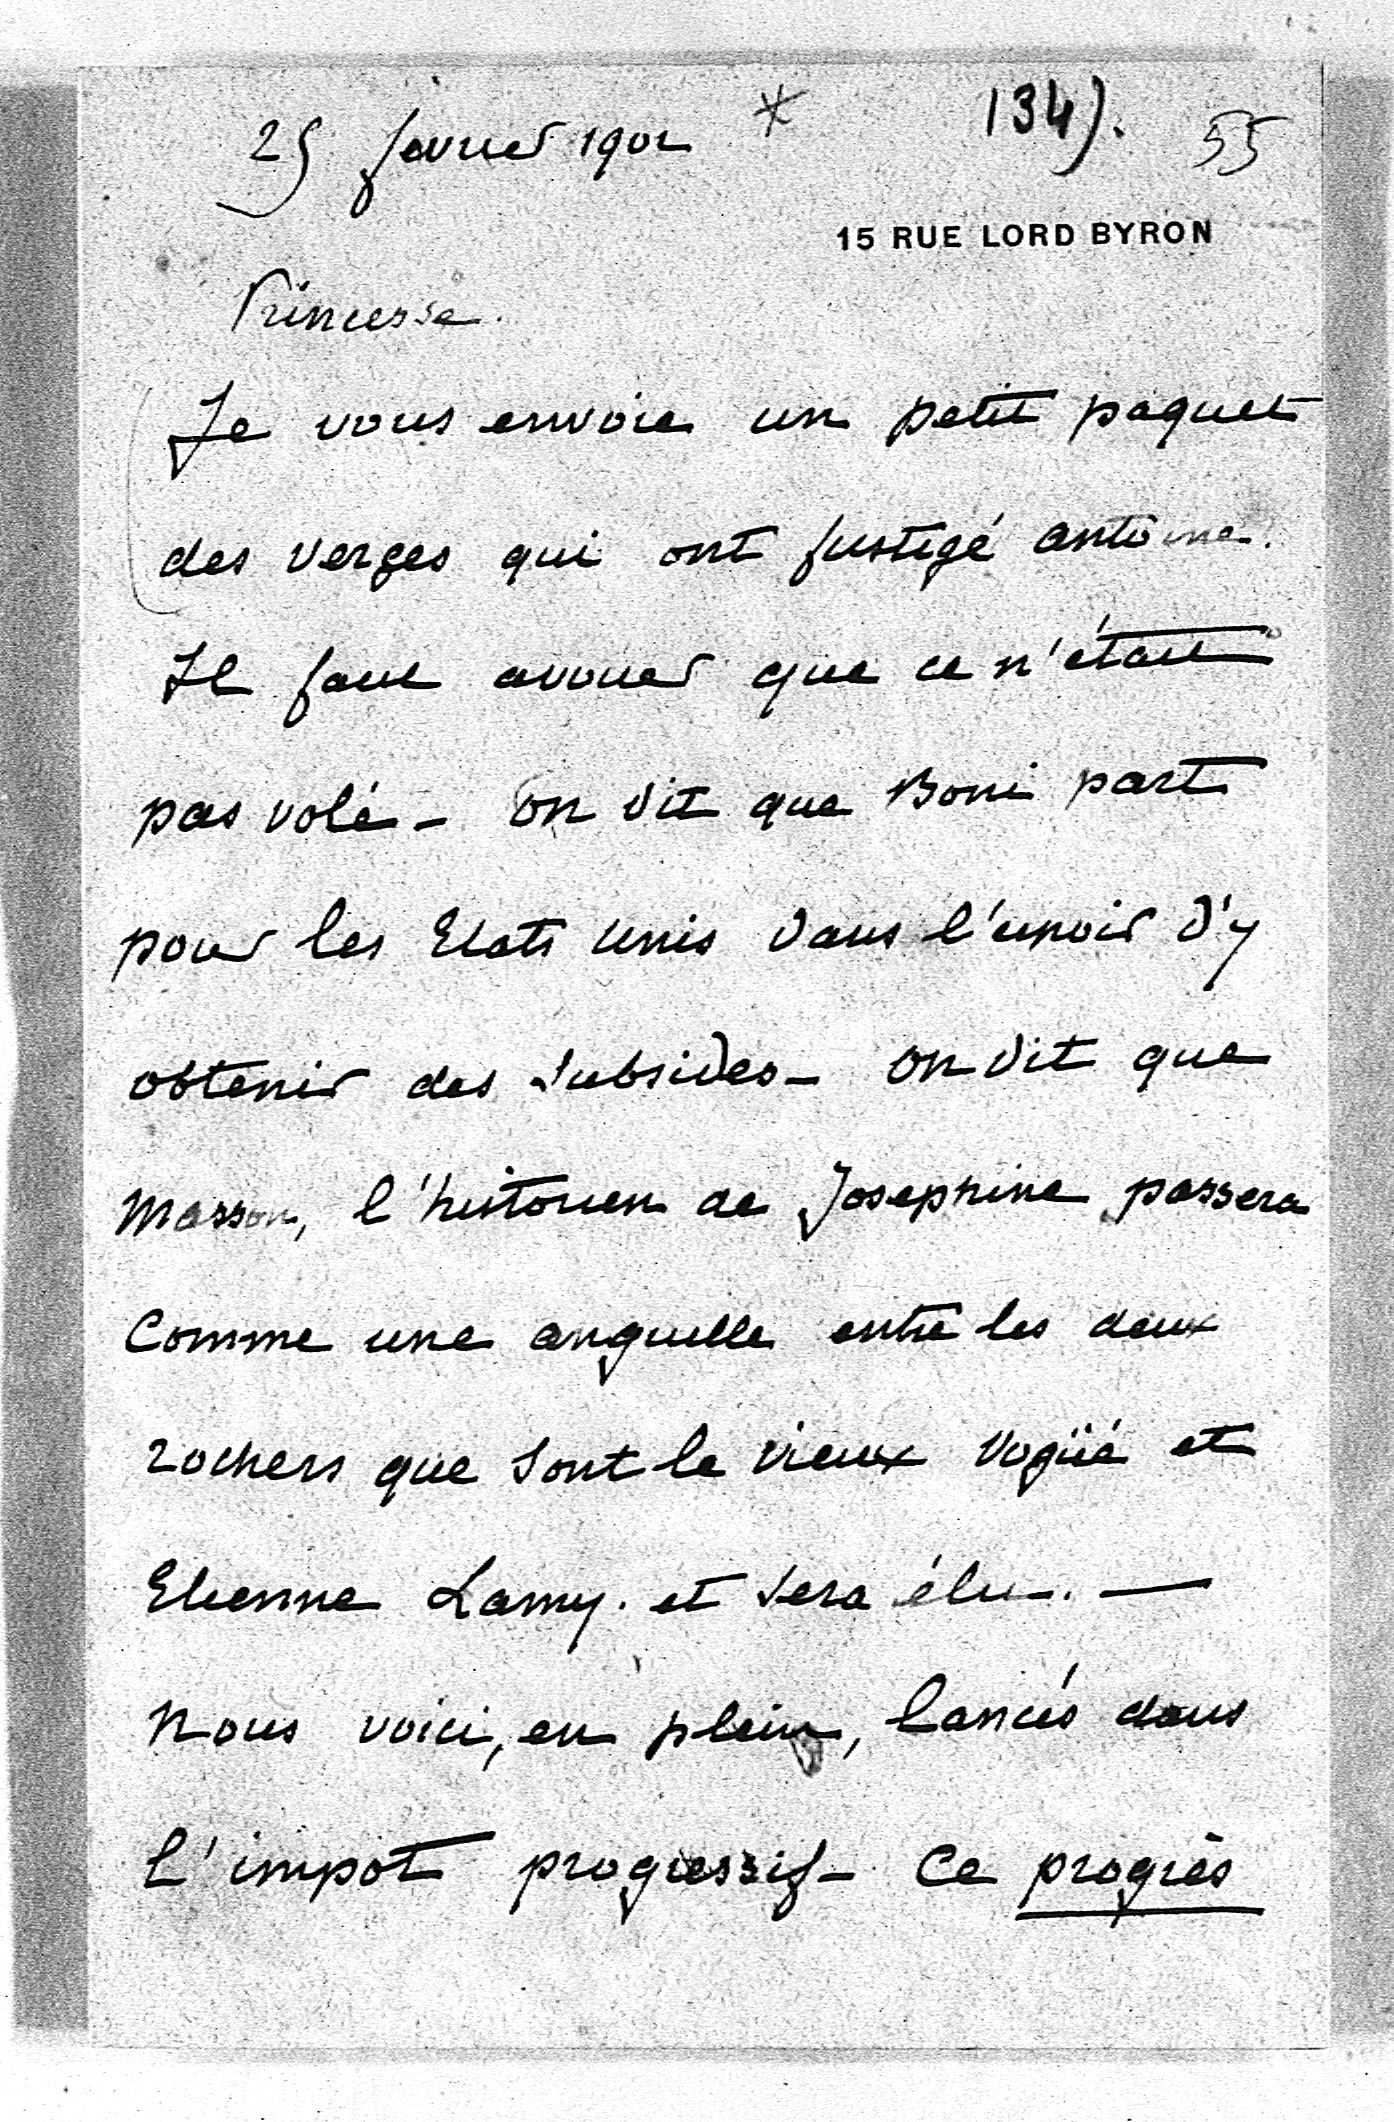 25 fevrier 1902 * 134). 55
15 RUE LORD BYRON
Princesse.
Je vous envoie un petit paquet
des verges qui ont fustigé antoine.
Il faut avouer que ce n'était
pas volé - on dit que Boni part
pour les Etats Unis dans l'espoir d'y
obtenir des subsides - on dit que
Masson, l'historien de Josephine passera
comme une anguille entre les deux
rochers que sont le vieux Vogüé et
Etienne Lamy. et sera élu. —
Nous voici, en plein, lancés dans
l'impot progressif - Ce progrès